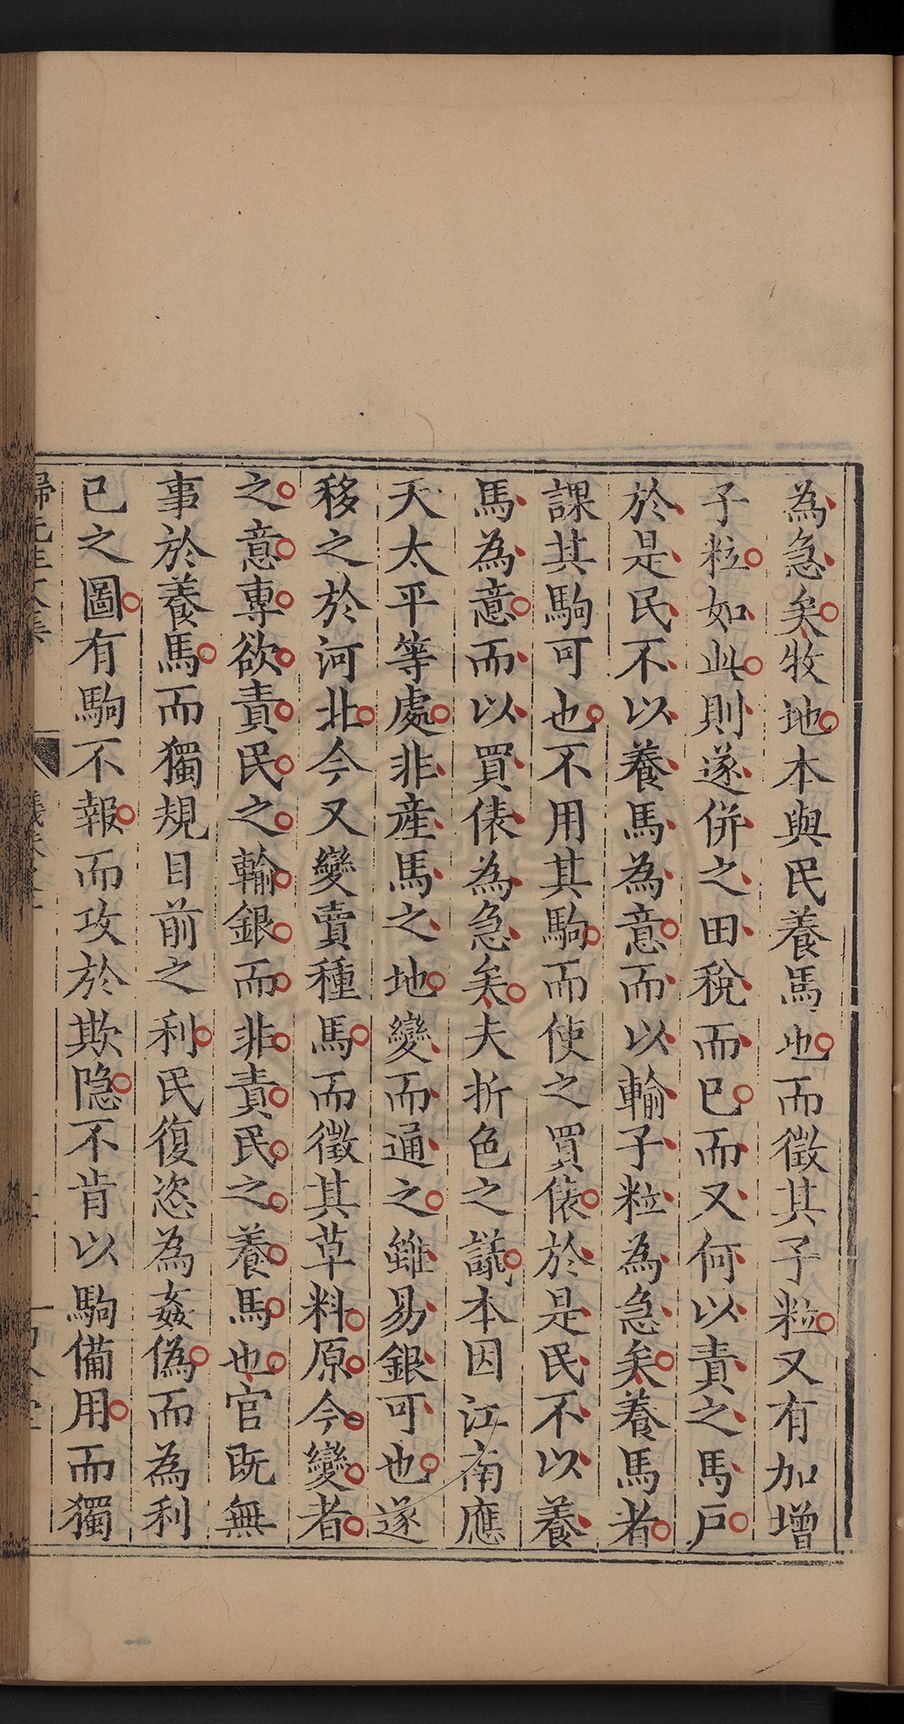 為急矣牧地本與民養馬也而徵其子粒又有加增
子粒如此則遂併之田稅而已而又何以責之馬戶
於是民不以養馬為意而以輸子粒為急矣養馬者
課其駒可也不用其駒而使之買俵於是民不以養
馬為意而以買俵為急矣夫折色之議本因江南應
天太平等處非產馬之地變而通之雖易銀可也遂
移之於河北今又變賣種馬而徵其草料原今變者
之意專欲責民之輸銀而非責民之養馬也官既無
事於養馬而獨規目前之利民復恣為姦偽而為利
已之圖有駒不報而攻於欺隐不肯以駒備用而獨